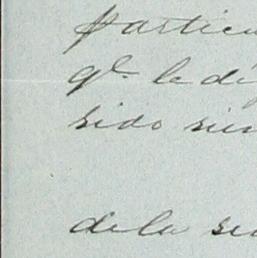 particu
qe. le dij
sido siem
de la su